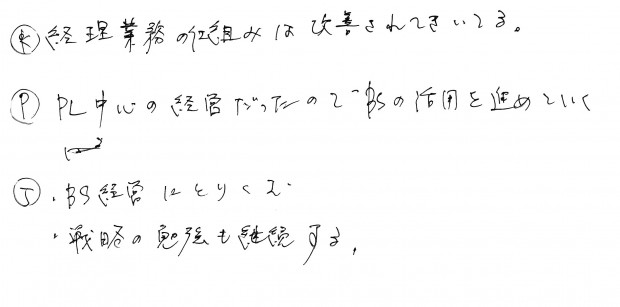 Ⓚ 経理業務の仕組みは改善されてきいてる。
Ⓟ PL中心の経営だったのでBSの活用を進めていく
Ⓙ ・BS経営にとりくむ
・戦略の勉強も継続する。